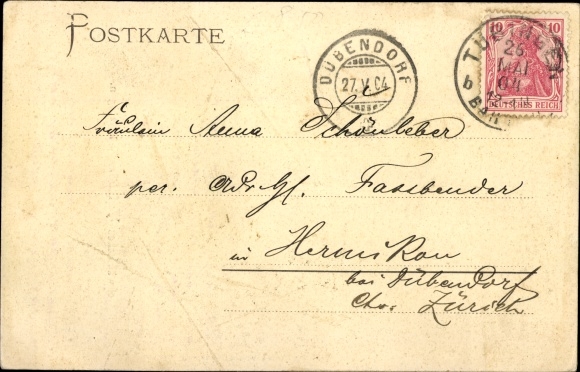 POSTKARTE
DÜBENDORF
27.V.04
10 10
DEUTSCHES REICH
TÜBINGEN
26
MAI
04
b BAH
Fräulein Anna Schönleber
per. Adr. H. Fassbender
in Hermikon
bei Dübendorf
Ctn. Zürich